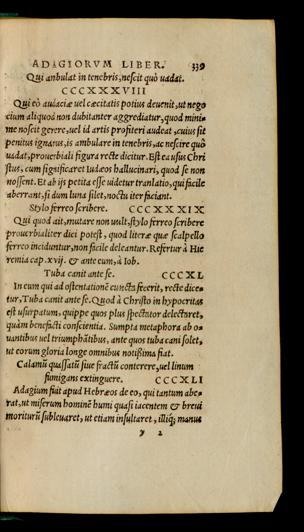 ADAGIORVM LIBER. 339
Qui anbulat in tenebris, nescit quò uadat.
CCCXXXVIII
Qui eò audaciæ uel cæcitatis potius deuenit, ut nego
cium aliquod non dubitanter aggrediatur, quod mini=
me noscit gerere, uel id artis profiteri audeat, cuius sit
penitus ignarus, is ambulare in tenebris, ac nescire quò
uadat, prouerbiali figura recte dicitur. Est ea usus Chri
stus, cum significaret Iudæos hallucinari, quod se non
nossent. Et ab ijs petita esse uidetur tranlatio, qui facile
aberrant, si dum luna silet, noctu iter faciant.
Stylo ferreo scribere. CCCXXXIX
Qui quod ait, mutare non uult, stylo ferreo scribere
prouerbialiter dici potest, quod literæ quæ scalpello
ferreo inciduntur, non facile deleantur. Refertur à Hie
remia cap. xvij. & ante eum, à Iob.
Tuba canit ante se. CCCXL
In eum qui ad ostentationẽ cuncta fecerit, recte dice=
tur, Tuba canit ante se. Quod à Christo in hypocritas
est usurpatum, quippe quos plus spectator delectaret,
quàm benefacti conscientia. Sumpta metaphora ab o=
uantibus uel triumphãtibus, ante quos tuba cani solet,
ut eorum gloria longe omnibus notissima fiat.
Calamũ quassatũ siue fractũ conterere, uel linum
fumigans extinguere. CCCXLI
Adagium fuit apud Hebræos de eo, qui tantum abe=
rat, ut miserum hominẽ humi quasi iacentem & breui
moriturũ subleuaret, ut etiam insultaret, illiq; manus
y 2